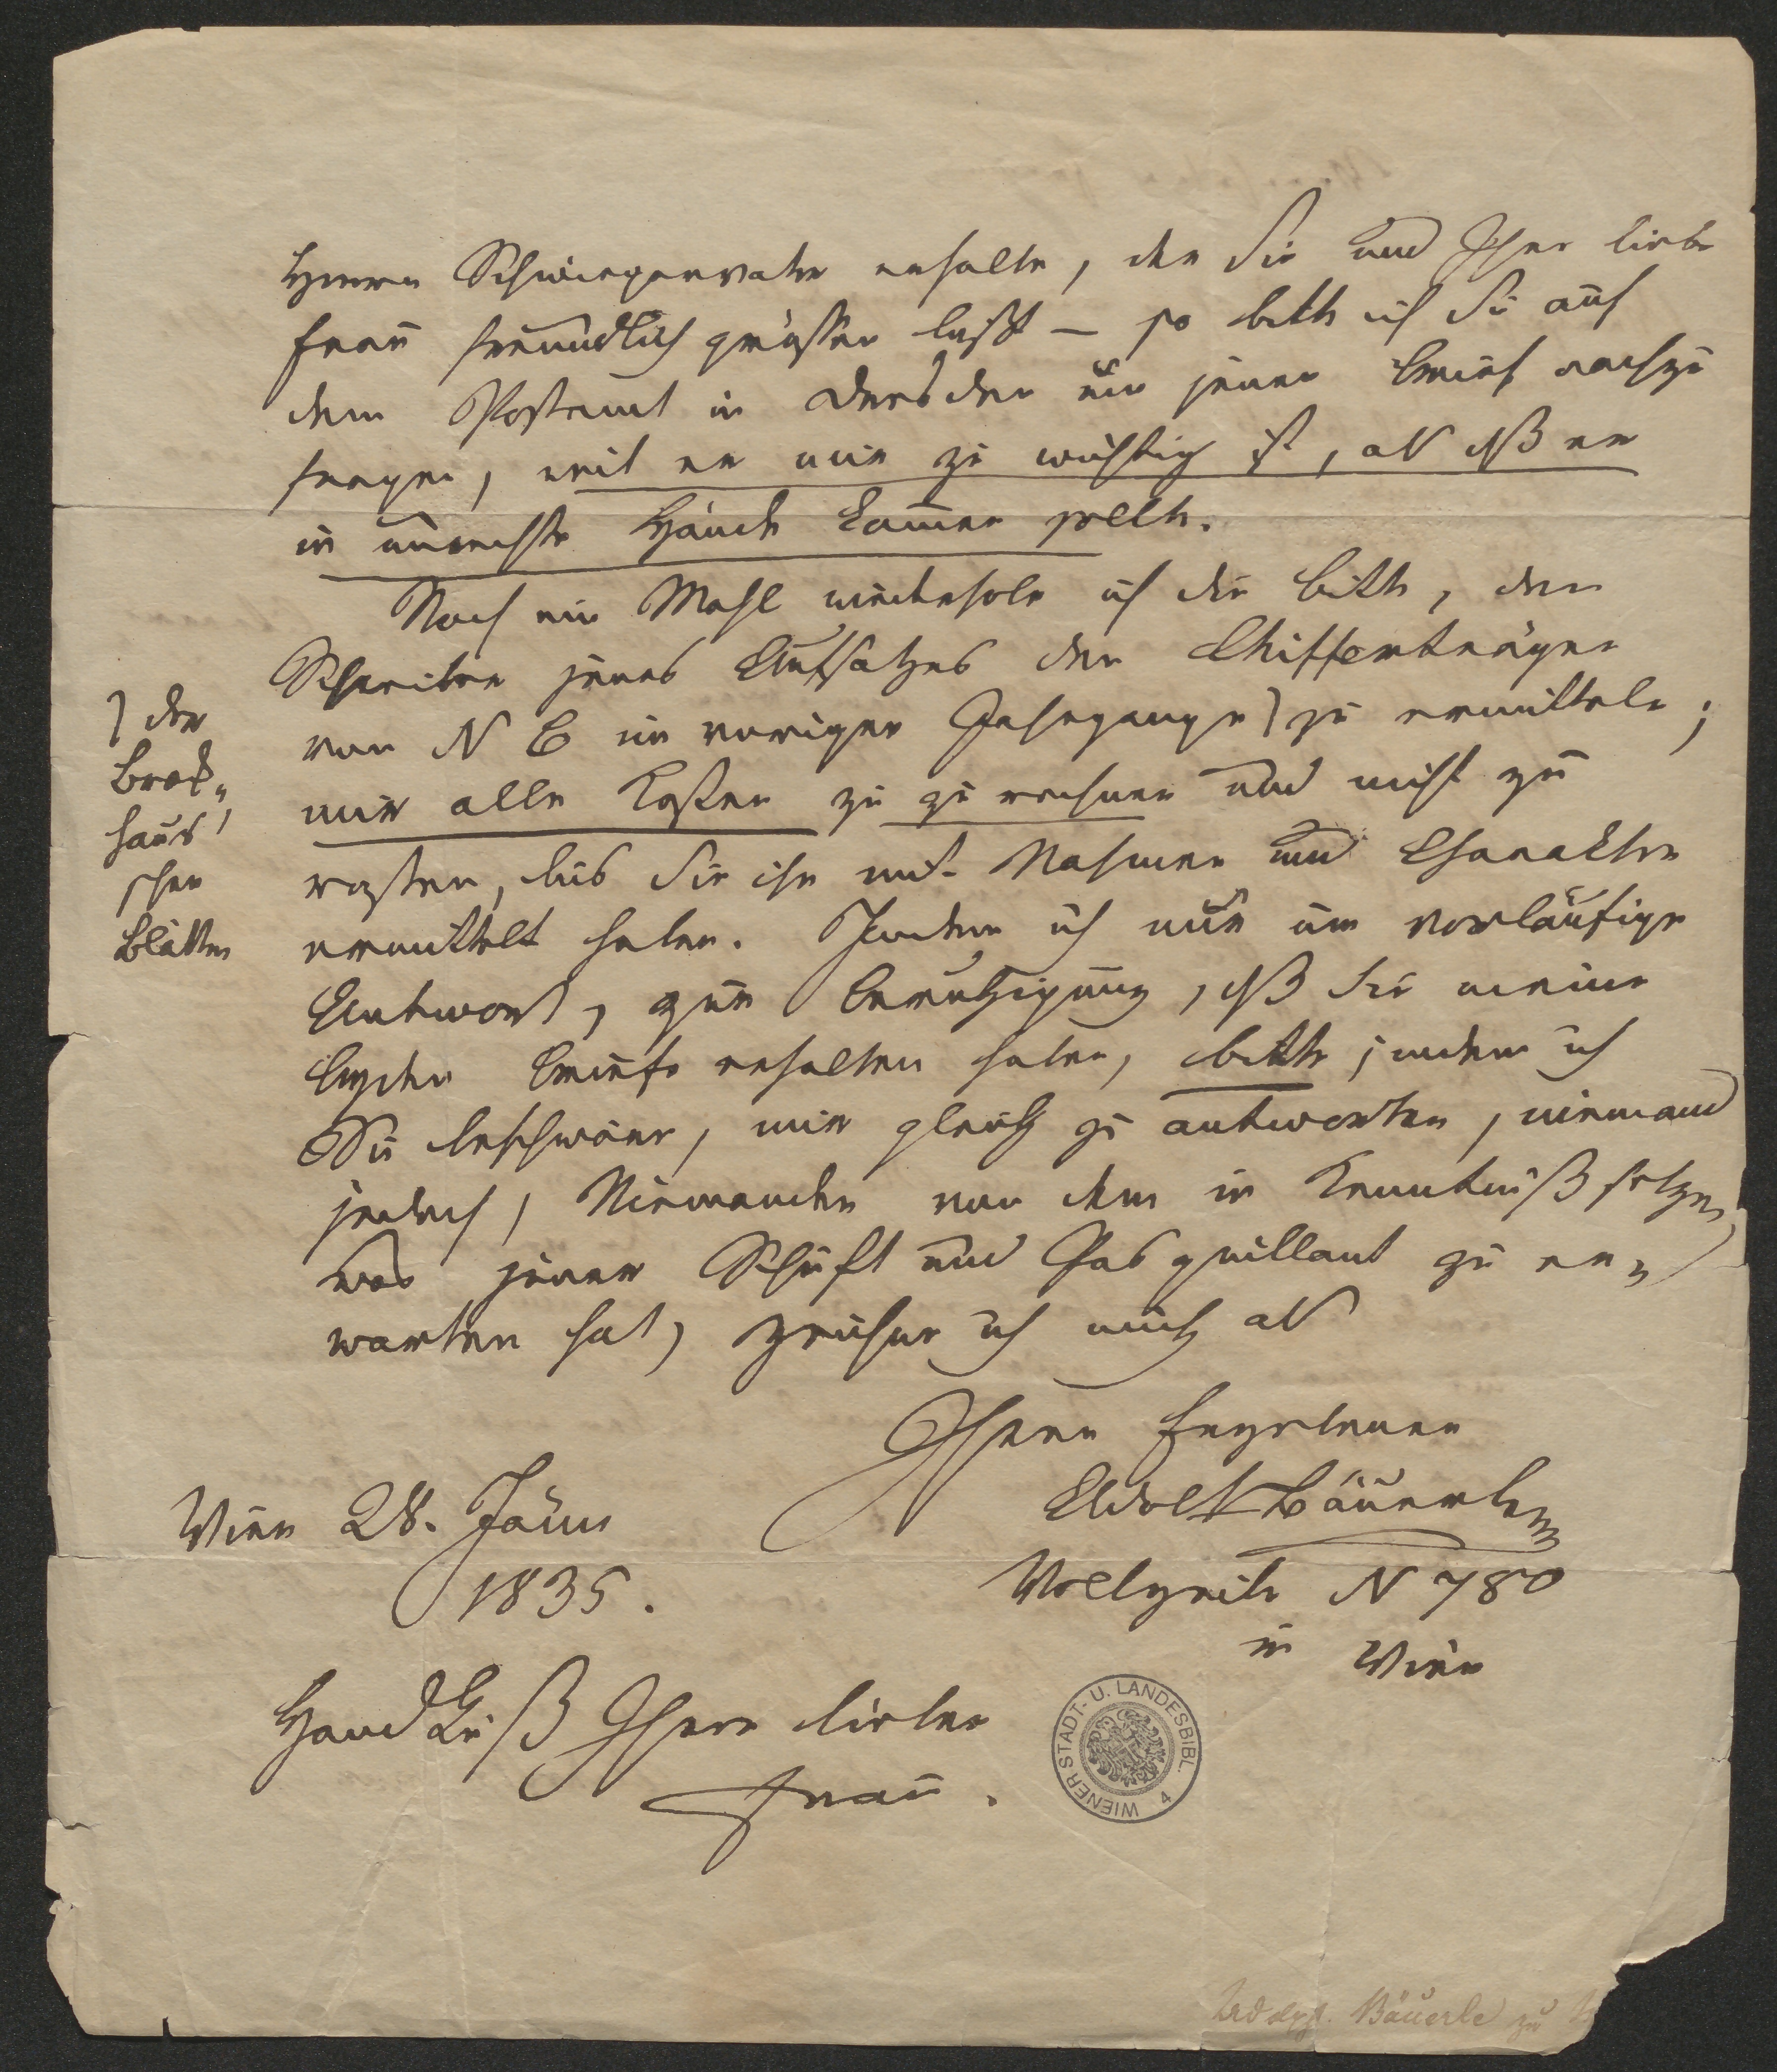 Herrn Schwiegervater erhalte, der Sie und Ihre liebe
Frau freundlich grüssen lässt — so bitte ich Sie auf
dem Postamt in Dresden um jenen Brief nachzu
fragen, weil er mir zu wichtig ist, als daß er
in unrechte Hände kommen sollte.
Noch ein Mahl wiederhole ich die Bitte, den
Schreiber jenes Aufsatzes der Chifferträger
von N 6 im vorigen Jahrgange) zu ermitteln;
) der
Brok„
haus'
schen
Blätter
mir alle Kosten zu zu rechnen und nicht zu
rasten, bis Sie ihn mit Nahmen und Charakter
ermittelt haben. Indem ich nur um vorläufige
Antwort, zur Beruhigung, daß Sie meine
beyden Briefe erhalten haben, bitte, indem ich
Sie beschwöre, mir gleich zu antworten, niemand
jedoch, Niemanden von dem in Kenntniß setzen,
was jener Schuft und Pasquillant zu er„
warten hat, zeichne ich mich als
Ihren Ergebenen
Adolf Bäuerle
Wien 28. Jänn
1835.
Wollzeile N 780
in Wien
Hand Kuß Ihrer lieben
Frau.
WIENER STADT- U. LANDESBIBL. 4
Bäuerle zu